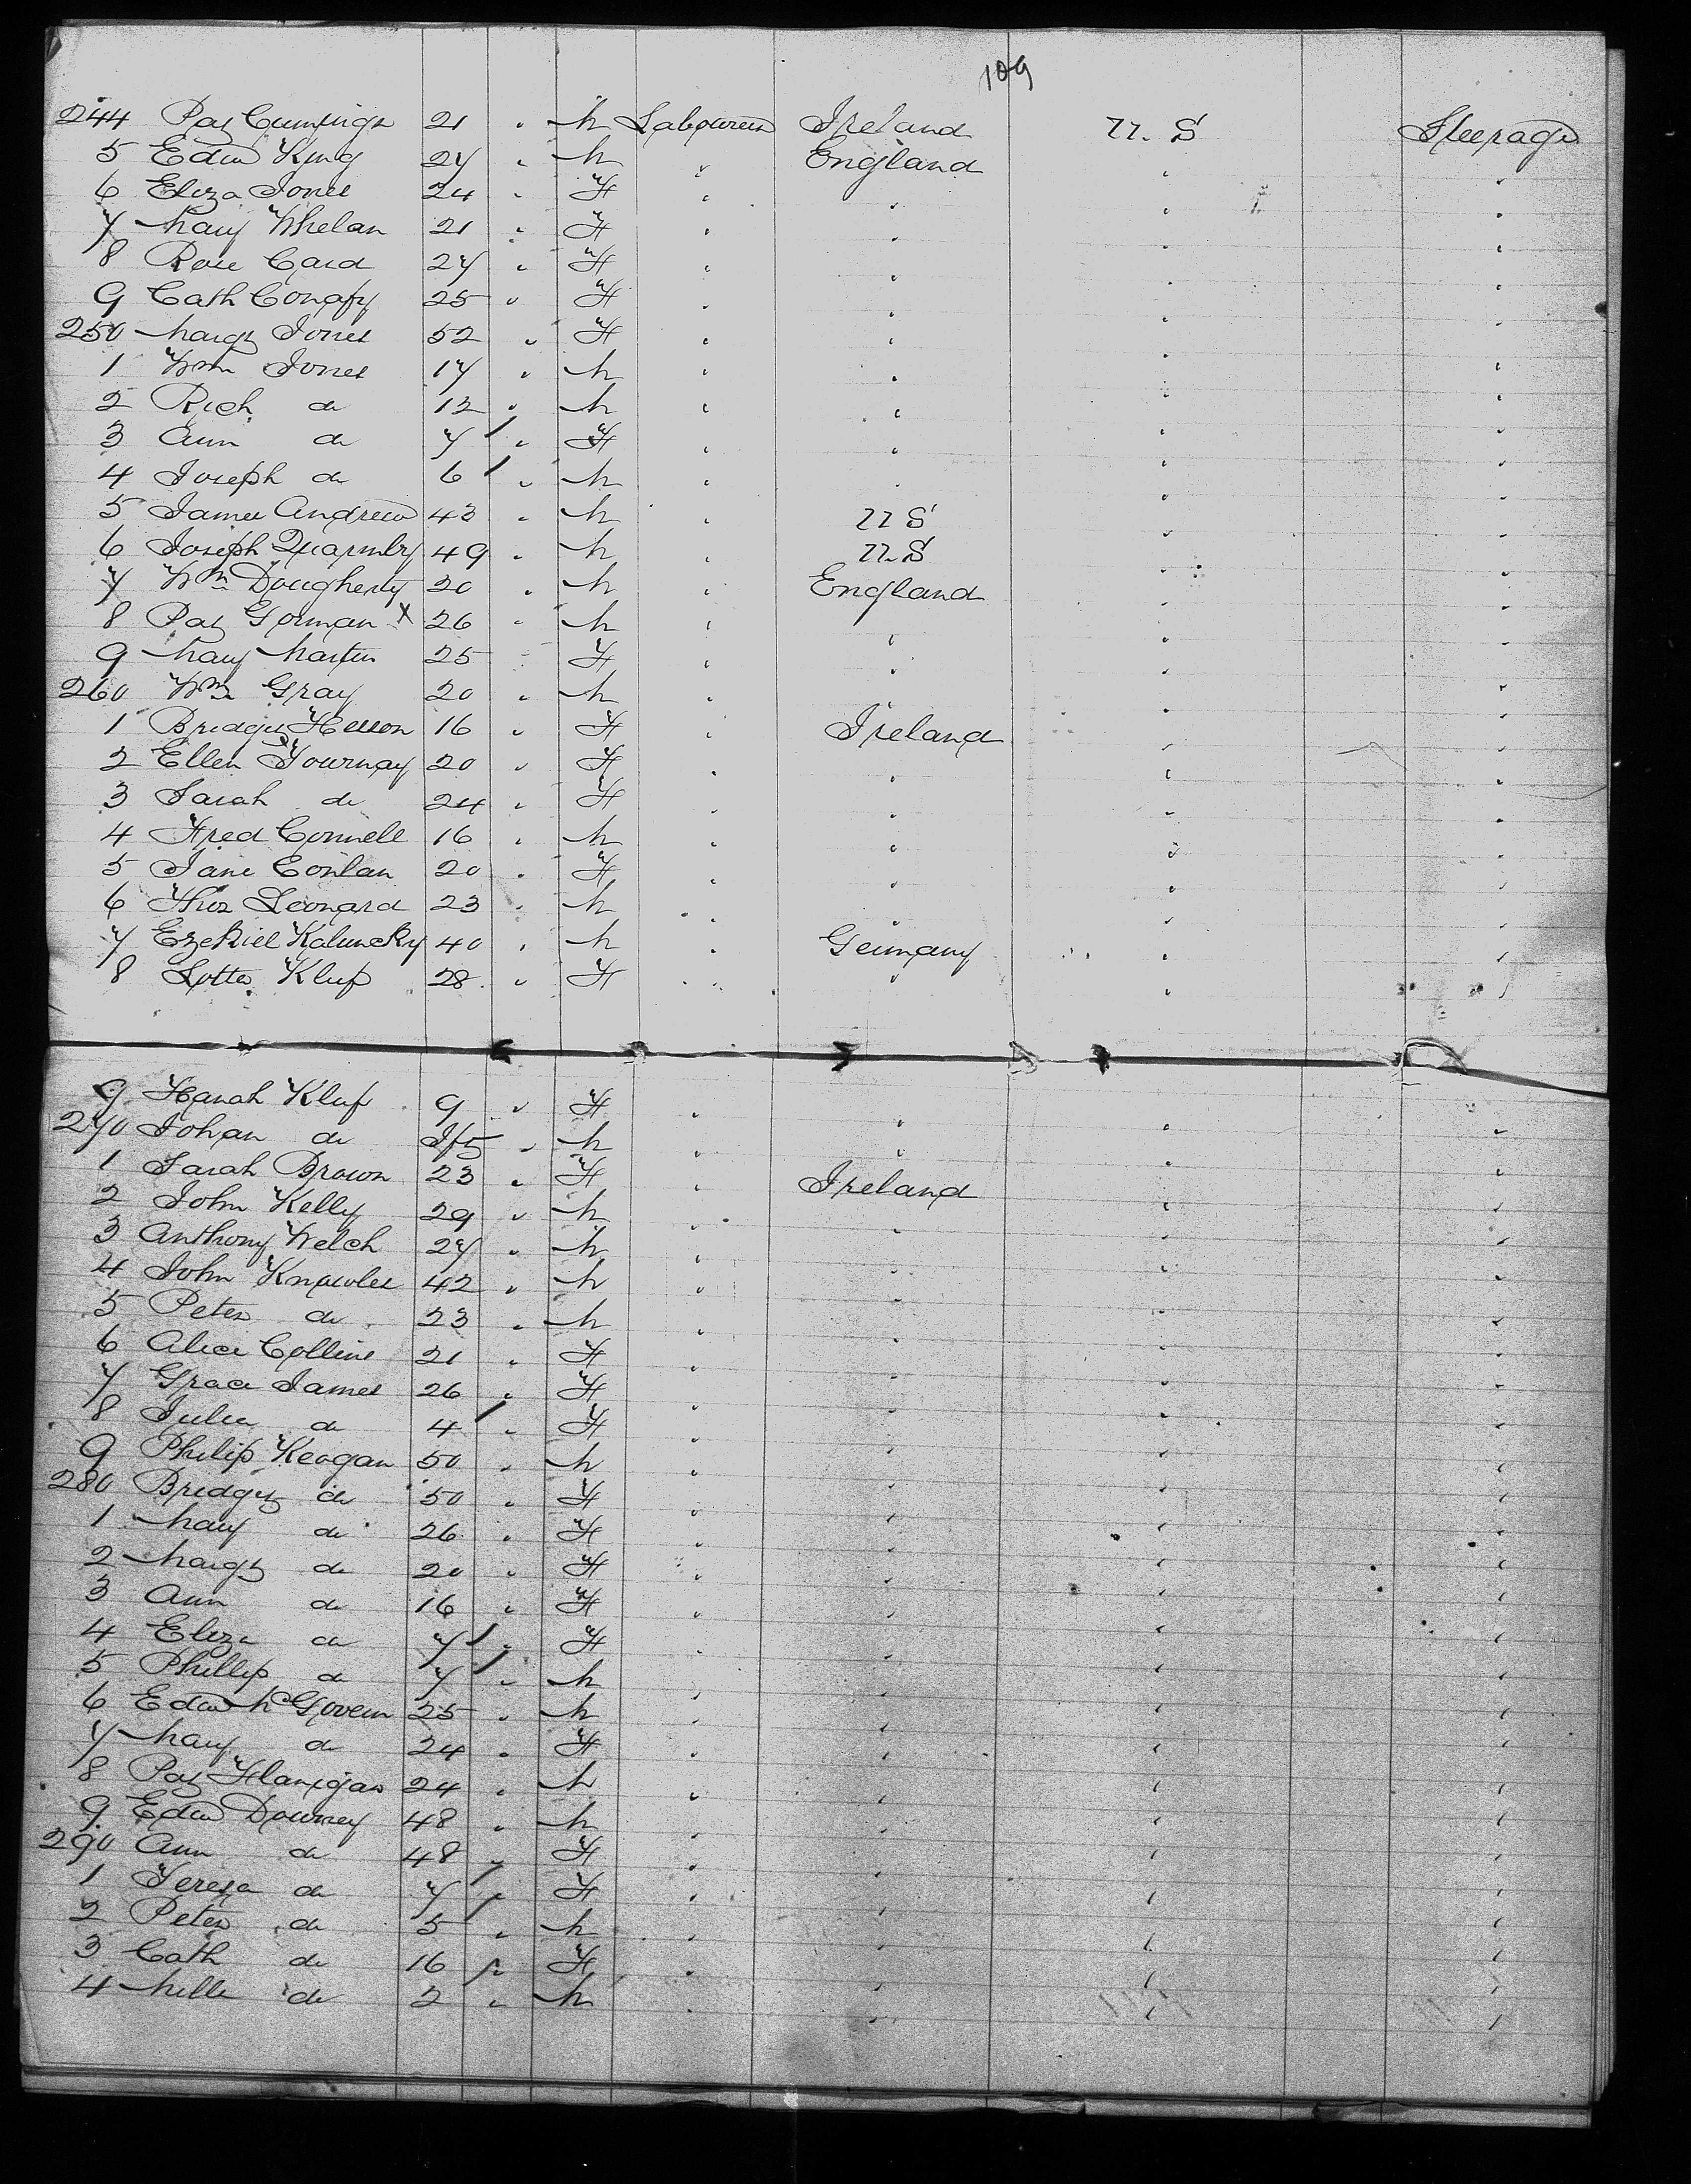 109
244 Pat Cummings 21 " M Labourers Ireland U. S Steerage
5 Edwd King 27 " M " England " "
6 Eliza Jones 24 " F " " " "
7 Mary Whelan 21 " F " " " "
8 Rose Card 27 " F " " " "
9 Cath Conafy 25 " F " " " "
250 Margt Jones 52 " F " " " "
1 Wm Jones 17 " M " " " "
2 Rich do 12 " M " " " "
3 Ann do 7 " F " " " "
4 Joseph do 6 " M " " " "
5 James Andrew 43 " M " U S " "
6 Joseph Quarmby 49 " M " U. S " "
7 Wm Dougherty 20 " M " England " "
8 Pat Gorman x 26 " M " " " "
9 Mary Martin 25 " F " " " "
260 Wm Gray 20 " M " " " "
1 Bridget 16 " F " Ireland " "
2 Ellen 20 " F " " " "
3 Sarah do 24 " F " " " "
4 Fred Connell 16 " M " " " "
5 Jane Conlan 20 " F " " " "
6 Thos Leonard 23 " M " " " "
7 Ezekiel 40 " M " Germany " "
8 Lotte Kluf 28 " F " " " "
9 Hanah Kluf 9 " F " " " "
270 Johan do " M " " " "
1 Sarah Brown 23 " F " Ireland " "
2 John Kelly 29 " M " " " "
3 Anthony Welch 27 " M " " " "
4 John Knowles 42 " M " " " "
5 Peter do 23 " M " " " "
6 Alice Collins 21 " F " " " "
7 Grace James 26 " F " " " "
8 Julia do 4 " F " " " "
9 Philip Keogan 50 " M " " " "
280 Bridget do 50 " F " " " "
1 Mary do 26 " F " " " "
2 Margt do 20 " F " " " "
3 Ann do 16 " F " " " "
4 Eliza do 7 " F " " " "
5 Phillip do 7 " M " " " "
6 Edwd McGovern 25 " M " " " "
7 Mary do 24 " F " " " "
8 Pat Flanigan 24 " M " " " "
9 Edwd Downey 48 " M " " " "
290 Ann do 48 " F " " " "
1 Teresa do 7 " F " " " "
2 Peter do 5 " M " " " "
3 Cath do 16 " F " " " "
4 do 2 " M " " " "